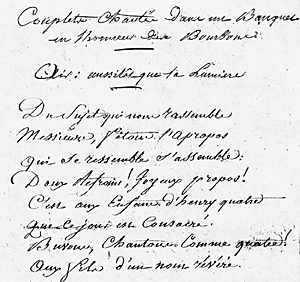 Couplets Chantés Dans un Banquet
en l'honneur des Bourbons.
Air: aussitôt que la Lumiere
Du Sujet qui nous rassemble
Messieurs, l'apropos
Qui Se ressemble S'assemble:
Doux Refrains! Joyeux propos!
C'est aux Enfans d'henry quatre
Que Ce jour est Consacré.
Buvons, Chantons Comme quatre!
Aux fils d'un nom révéré.